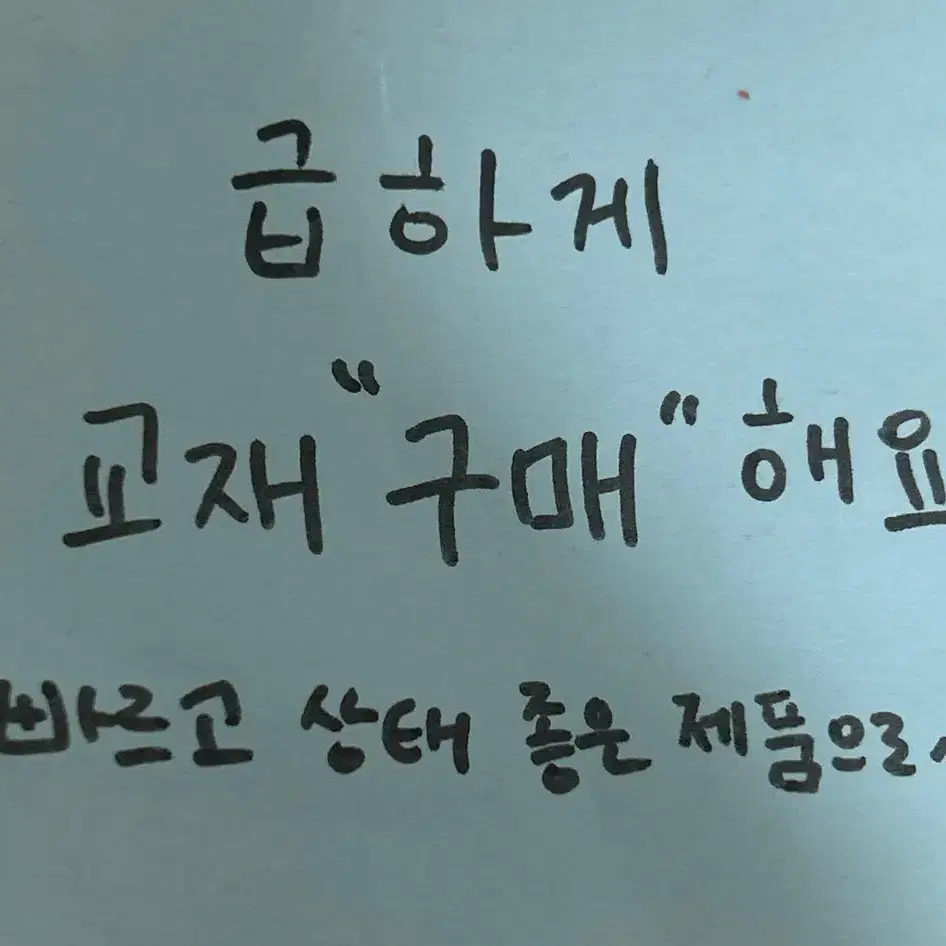 급하게
교재 "구매" 해요
빠르고 상태 좋은 제품으로